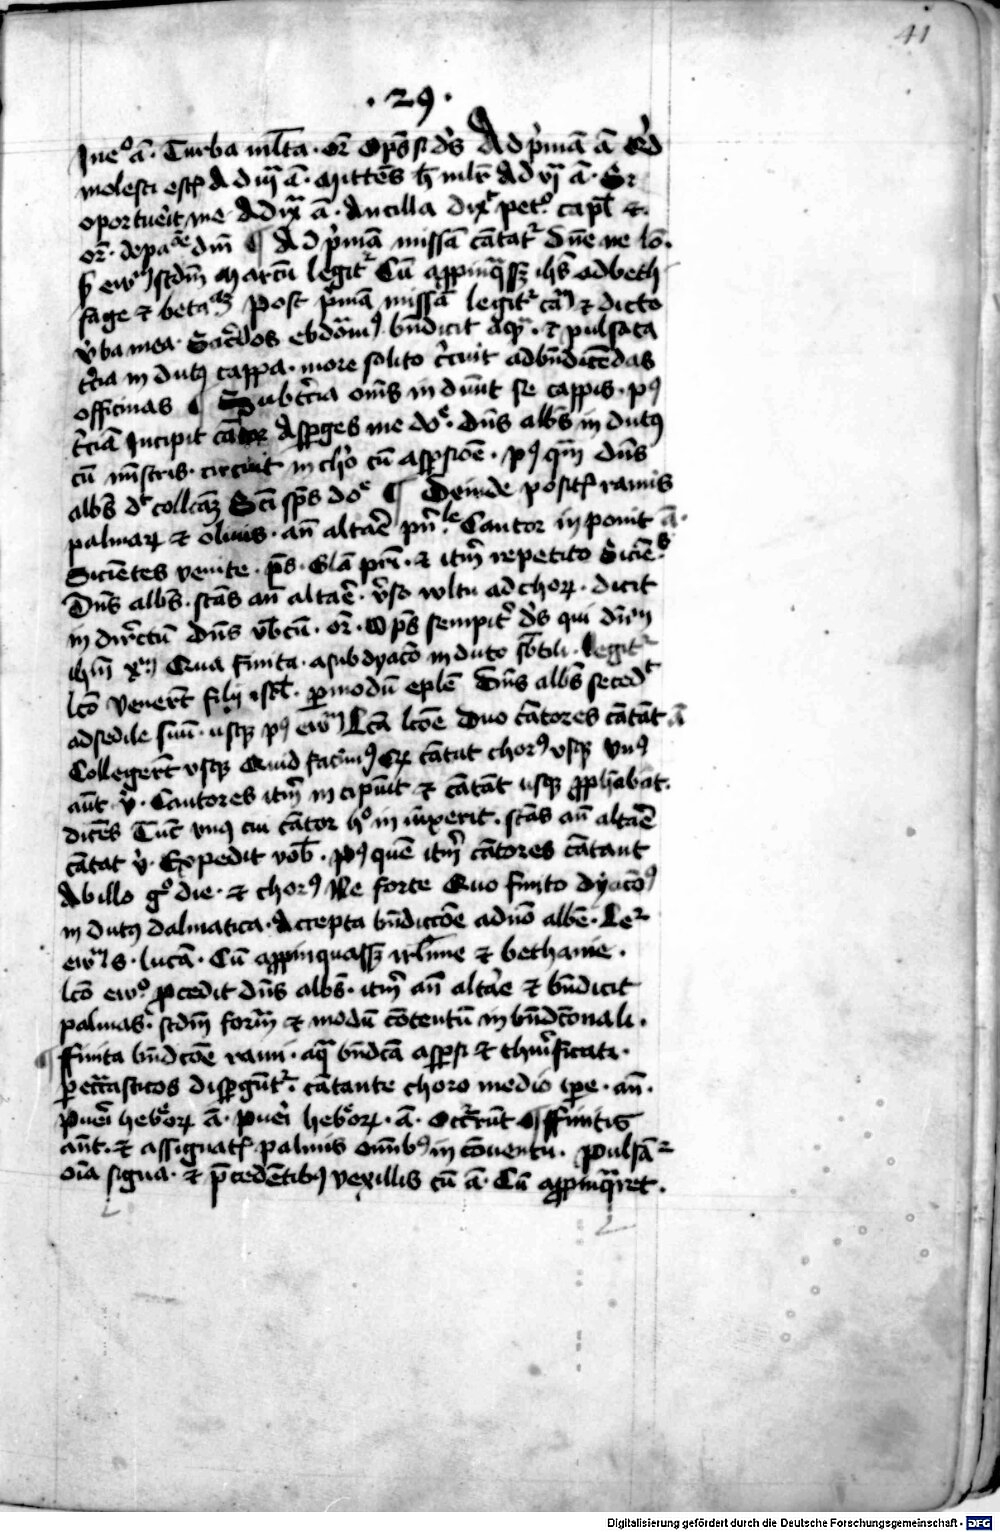 41
· 29 ·
In eᵒ ā · Turba ml̅ta · or̅ Op̅s s ds̅ Ad p̄mā ā
molesti est Ad iijᵃ ā · Mittēs h̄ Ad vjᵃ ā · Si
oportuerit me Ad ixᵃ ā · Ancilla dix̄ pet̄ᵒ capl̅
or̅ · dn̄i ¶ Ad p̄mā missā cātatʳ Dn̄e ne lō ·
s ew̄ scd̅m Marcū legitʳ Cū app̄inq̄ss̄ ih̅s ad beth
fage ⁊ beta Post p̄mā missā legitʳ ⁊ dicto
v̄ba mea · Sac̄dos ebdōm̄ bn̄dicit aq̄ᵃ · ⁊ pulsata
t̄cia indutꝰ cappa · more solito c̄cuit ad bn̄dicēdas
officinas ¶ Sub t̄cia om̄s induūt se cappis · pꝰ
t̄ciā Incipit cātor Asp̄ges me dōᵉ · dn̄s albs̄ indutꝰ
cū mīstris · circuit in chō cū asp̄sioē · pꝰ qm̄ dn̄s
albs̄ dt̄ collcām Sc̄i sp̄s dōᵉ ¶ Deinde posit ramis
palmaꝝ ⁊ oliuis · an̄ altāe pn̄ⁱˡᵉ Cantor inponit ā ·
Siciētes venite · ps̄ · Glā pr̄i · ⁊ itm̄ repetito Siciēˢ
Dn̄s albs̄ · stās an̄ altāe · v̄so wltu ad choꝝ · dicit
in dir̄ctū Dn̄s vb̄cū · or̅ · Op̄s sempitʳ ds̄ qui dn̄m
ihm̄ xm̄ Qua finita · a subdyacō induto sb̄tili · legitʳ
lcō Venert̄ filij isrl̄ · p̄ modū eplē Dn̄s albs̄ secedᵗ
ad sedile suū · usqꝫ pꝰ ew̄ Lc̄ā lcōe Duo cātores cātāt ā
Collegert̄ vsqꝫ Quid facimꝰ cātat chorꝰ vsqꝫ Vnꝰ
aūt v̄ · Cantores itm̄ incipiūt ⁊ cātāt usqꝫ p̄phabāt ·
dicēs Tūc vnꝰ cui cātor hᵒ iniūxerit · stās an̄ altāe
cātat v̄ · Expedit vob̄ · Pꝰ quē itm̄ cātores cātant
Ab illo gᵒ die · ⁊ chorꝰ Ne forte Quo finito dyacōꝰ
indutꝰ dalmatica · Accepta bn̄diccōe a dn̄o albē · Leʳ
ew̄ s · lucā · Cū app̄inquass̄ irl̄ime ⁊ bethanie ·
lcō ew̄ᵒ p̄cedit dn̄s albs̄ · itm̄ an̄ altāe ⁊ bn̄dicit
palmas · scd̅m form̄ ⁊ modū cōtentū in bn̄dcōnali ·
¶ ffinita bn̄dcōe rami · aq̄ᵃ bn̄dcā asp̄si ⁊ thur̄ficati ·
disp̄gūtʳ · cātante choro medio tp̄e · an̄ ·
Pueri hebōꝝ ā · pueri hebōꝝ · ā · Occ̄rūt ¶ ffinitis
aūt · ⁊ assignat palmis om̄ibꝰ in cōuentu · Pulsāʳ
oīa signa · ⁊ p̄cedētibꝰ vexillis cū ā · Cū app̄inq̄ret ·
Digitalisierung gefördert durch die Deutsche Forschungsgemeinschaft - DFG